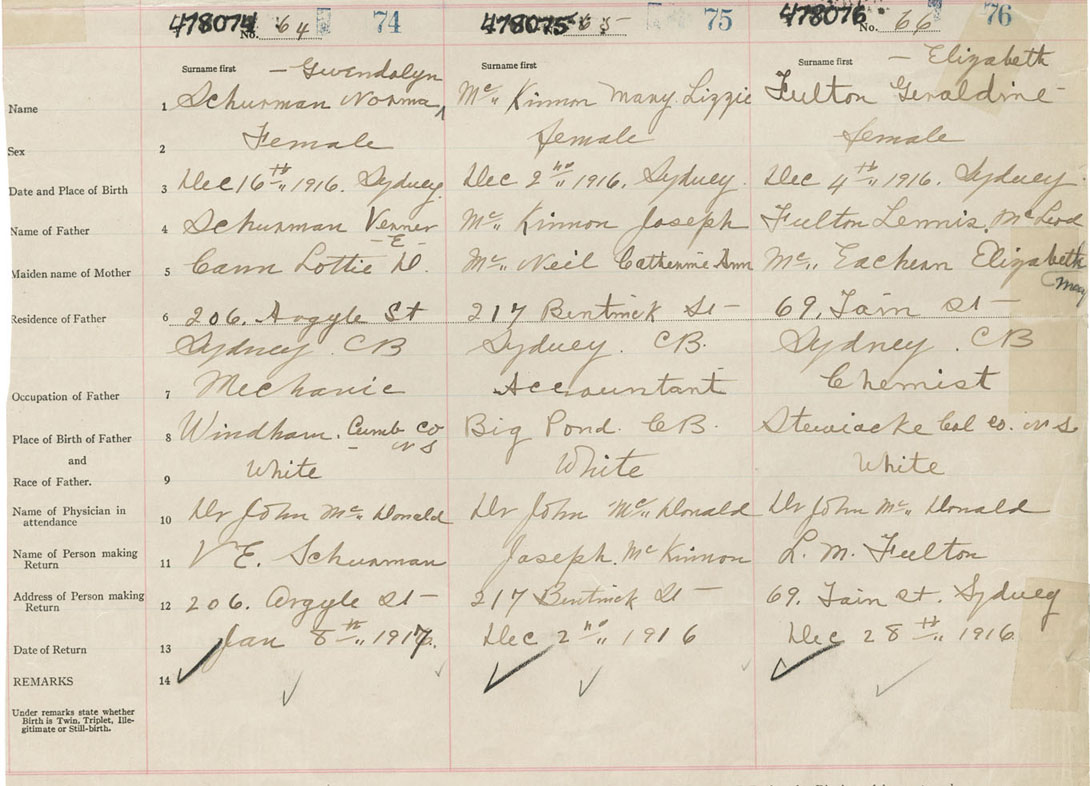 478074 No. 64 74 478075 65 75 478076 No. 66 76
Surname first — Gwendolyn Surname first Surname first — Elizabeth
Name 1 Schurman Norma ^ Mc Kinnon Mary Lizzie Fulton Geraldine
Sex 2 Female female female
Date and Place of Birth 3 Dec 16th 1916. Sydney Dec 2nd 1916. Sydney. Dec 4th 1916. Sydney.
Name of Father 4 Schurman Verner Mc Kinnon Joseph Fulton Lennis. McLeod
— E —
Maiden name of Mother 5 Cann Lottie D. Mc Neil Catherine Ann Mc Eachern Elizabeth
May
Residence of Father 6 206. Argyle St 217 Bentinck St — 69. Tain St —
Sydney. CB Sydney. CB. Sydney. CB
Occupation of Father 7 Mechanic Accountant Chemist
Place of Birth of Father 8 Windham. Cumb Co Big Pond. CB. Stewiacke Col Co. N S.
N S
and
Race of Father. 9 White White White
Name of Physician in attendance 10 Dr John Mc Donald Dr John Mc Donald Dr John Mc Donald
Name of Person making Return 11 V E. Schurman Joseph. Mc Kinnon L. M. Fulton
Address of Person making Return 12 206. Argyle St — 217 Bentinck St — 69. Tain St. Sydney
Date of Return 13 Jan 8th 1917. Dec 2nd 1916 Dec 28th 1916.
REMARKS 14
Under remarks state whether
Birth is Twin, Triplet, Ille-
gitimate or Still-birth.